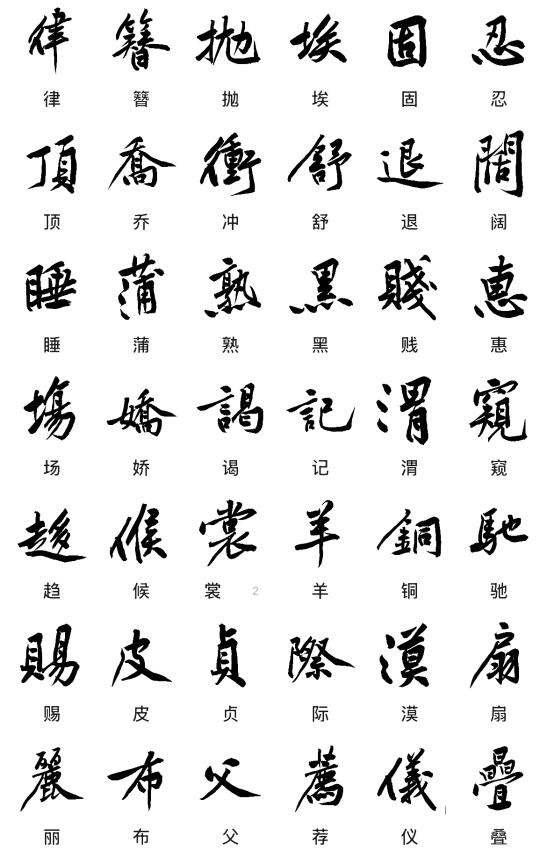 律 簪 抛 埃 固 忍
律 簪 抛 埃 固 忍
頂 喬 衝 舒 退 闊
顶 乔 冲 舒 退 阔
睡 蒲 熟 黑 賤 惠
睡 蒲 熟 黑 贱 惠
場 嬌 謁 記 渭 窺
场 娇 谒 记 渭 窥
趨 候 裳 羊 銅 馳
趋 候 裳 2 羊 铜 驰
賜 皮 貞 際 漠 扇
赐 皮 贞 际 漠 扇
麗 布 父 薦 儀 疊
丽 布 父 荐 仪 叠